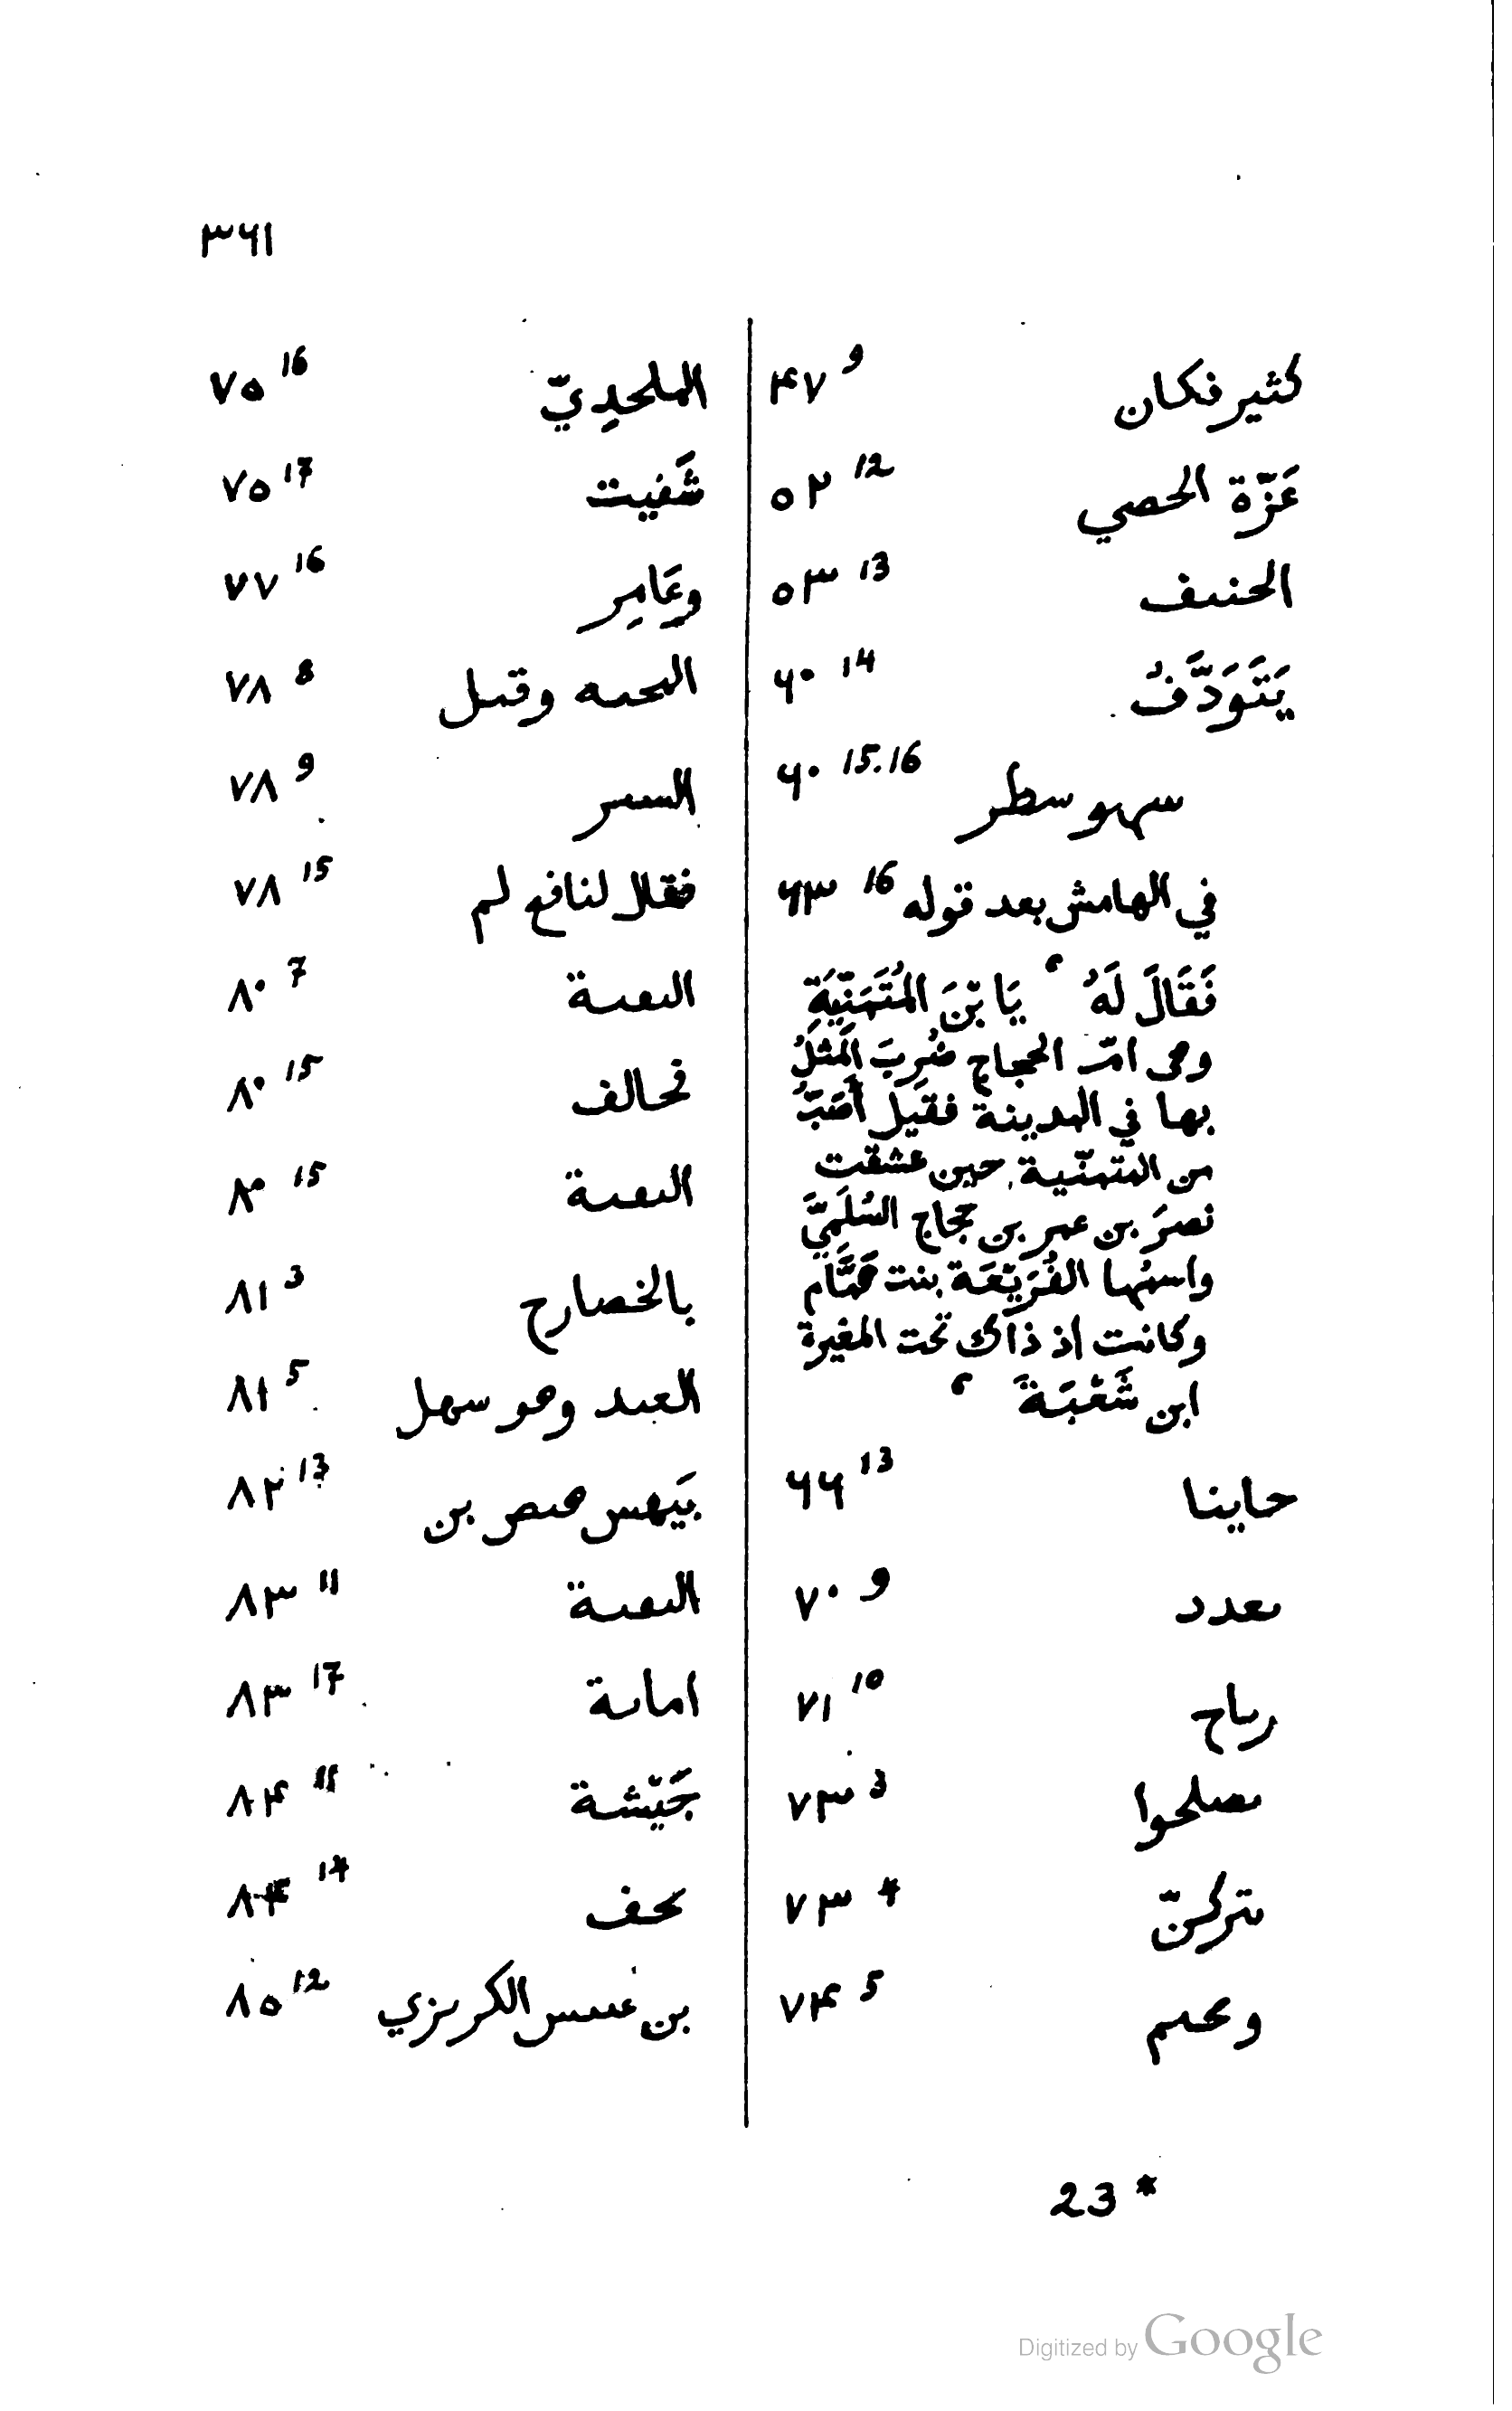 ٣٦١
كثير فكان ٤٧ 9
عَزّة الحصي ٥٢ 12
الحنىف ٥٣ 13
يَتَوَدَّفُ ٦٠ 14
سهو سطر ٦٠ 15.16
في الهامش بعد قوله ٦٣ 16
فَقَالَ لَهُ ، يَا بْنَ المُتَمَنِّيَة
وهى امّ الحجاج ضُرِبَ المَثَلُ
بها في المدينة فقيل أَصَبُّ
من المتمنّية حين عشقت
نصرَ بن عمر بن حجاج السُلَمِيَّ
واسمُها الفُرَيْعَة بنت هَمَّام
وكانت اذ ذاك تحت المغيرة
ابن شُعْبَةَ ،
حاىنا ٦٦ 13
ىعدد ٧٠ 9
رىاح ٧١ 10
ىصلحوا ٧٣ 3
ىتركنّ ٧٣ 4
وىحىم ٧٤ 5
الملحِديّ ٧٥ 16
شَفيت ٧٥ 17
وعَامِر ٧٧ 16
الىحىه وقىل ٧٨ 8
السىر ٧٨ 9
فقال لنافع لم ٧٨ 15
الىعىة ٨٠ 7
فحالف ٨٠ 15
الىعىة ٨٠ 15
بالخصارح ٨١ 3
العىد وهو سهل ٨١ 5
بَيهس هىصر بن ٨٢ 13
الىعىة ٨٣ 11
اماىة ٨٣ 17
جَيْشة ٨٤ 11
ىحف ٨٤ 14
بن عىىس الكرىزي ٨٥ 12
23*
Digitized by Google